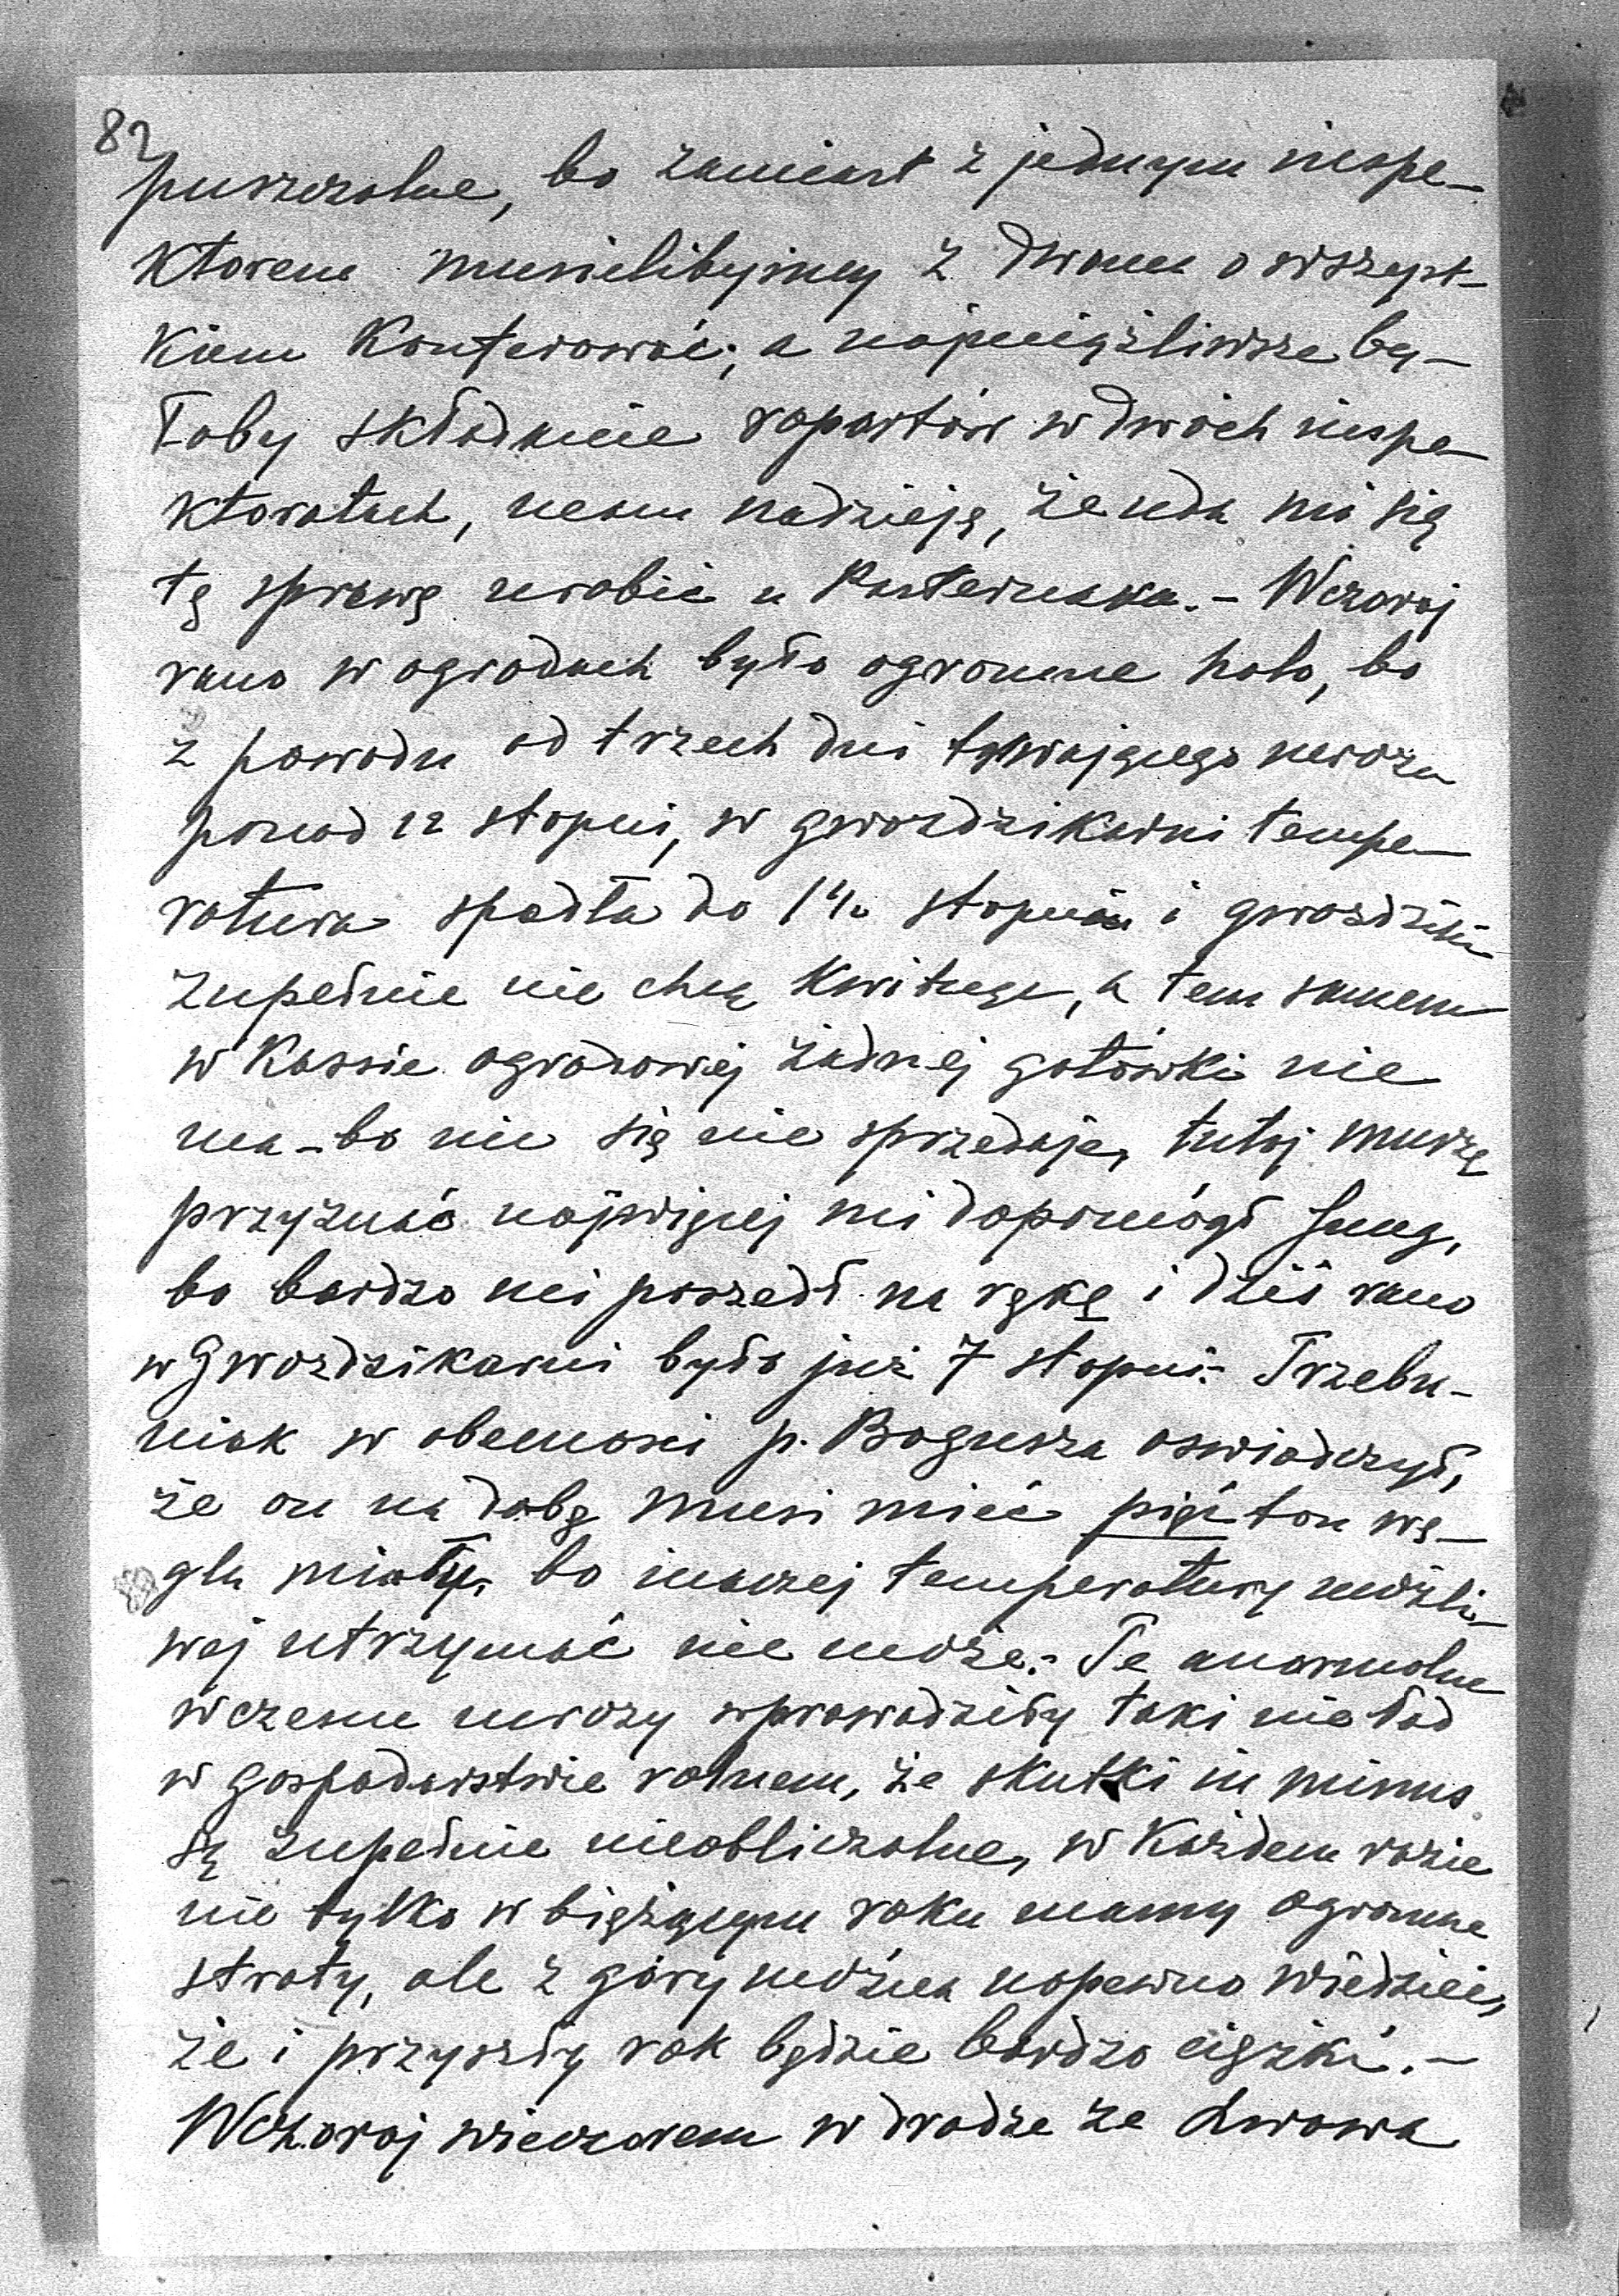 82
puszczalne, bo zamiast z jednym inspe-
ktorem musielibyśmy z dwoma o wszyst-
kiem konferować, a najuciążliwsze by-
łoby składanie raportów w dwóch inspe-
ktoratach, mam nadzieję, że uda mi się
tę sprawę urobić u . - Wczoraj
rano w ogrodach było ogromne halo, bo
z powodu od trzech dni trwającego mrozu
ponad 12 stopni, w gwozdzikarni tempe-
ratura spadła do stopnia i gwozdziki
zupełnie nie chcą kwitnąc, a tem samem
w Kassie ogrodowej żadnej gotówki nie
ma - bo nic się nie sprzedaje, tutaj muszę
przyznać najwięcej mi dopomógł Jung,
bo bardzo mi poszedł na rękę i dziś rano
w Gwozdzikarni było już 7 stopni. Trzebu-
niak w obecnosci p. Bogusza oswiadczył,
że on na dobę musi mieć pięć ton wę-
glu miału, bo inaczej temperatury możli-
wej utrzymać nie może. - Te anormalne
wczesne mrozy wprowadziły taki nieład
w gospodarstwie rolnem, że skutki in minus
są zupełnie nieobliczalne, w każdem razie
nie tylko w bieżącym roku mamy ogromne
straty, ale z góry można napewno wiedzieć,
że i przyszły rok będzie bardzo ciężki. -
Wczoraj wieczorem w drodze ze Lwowa